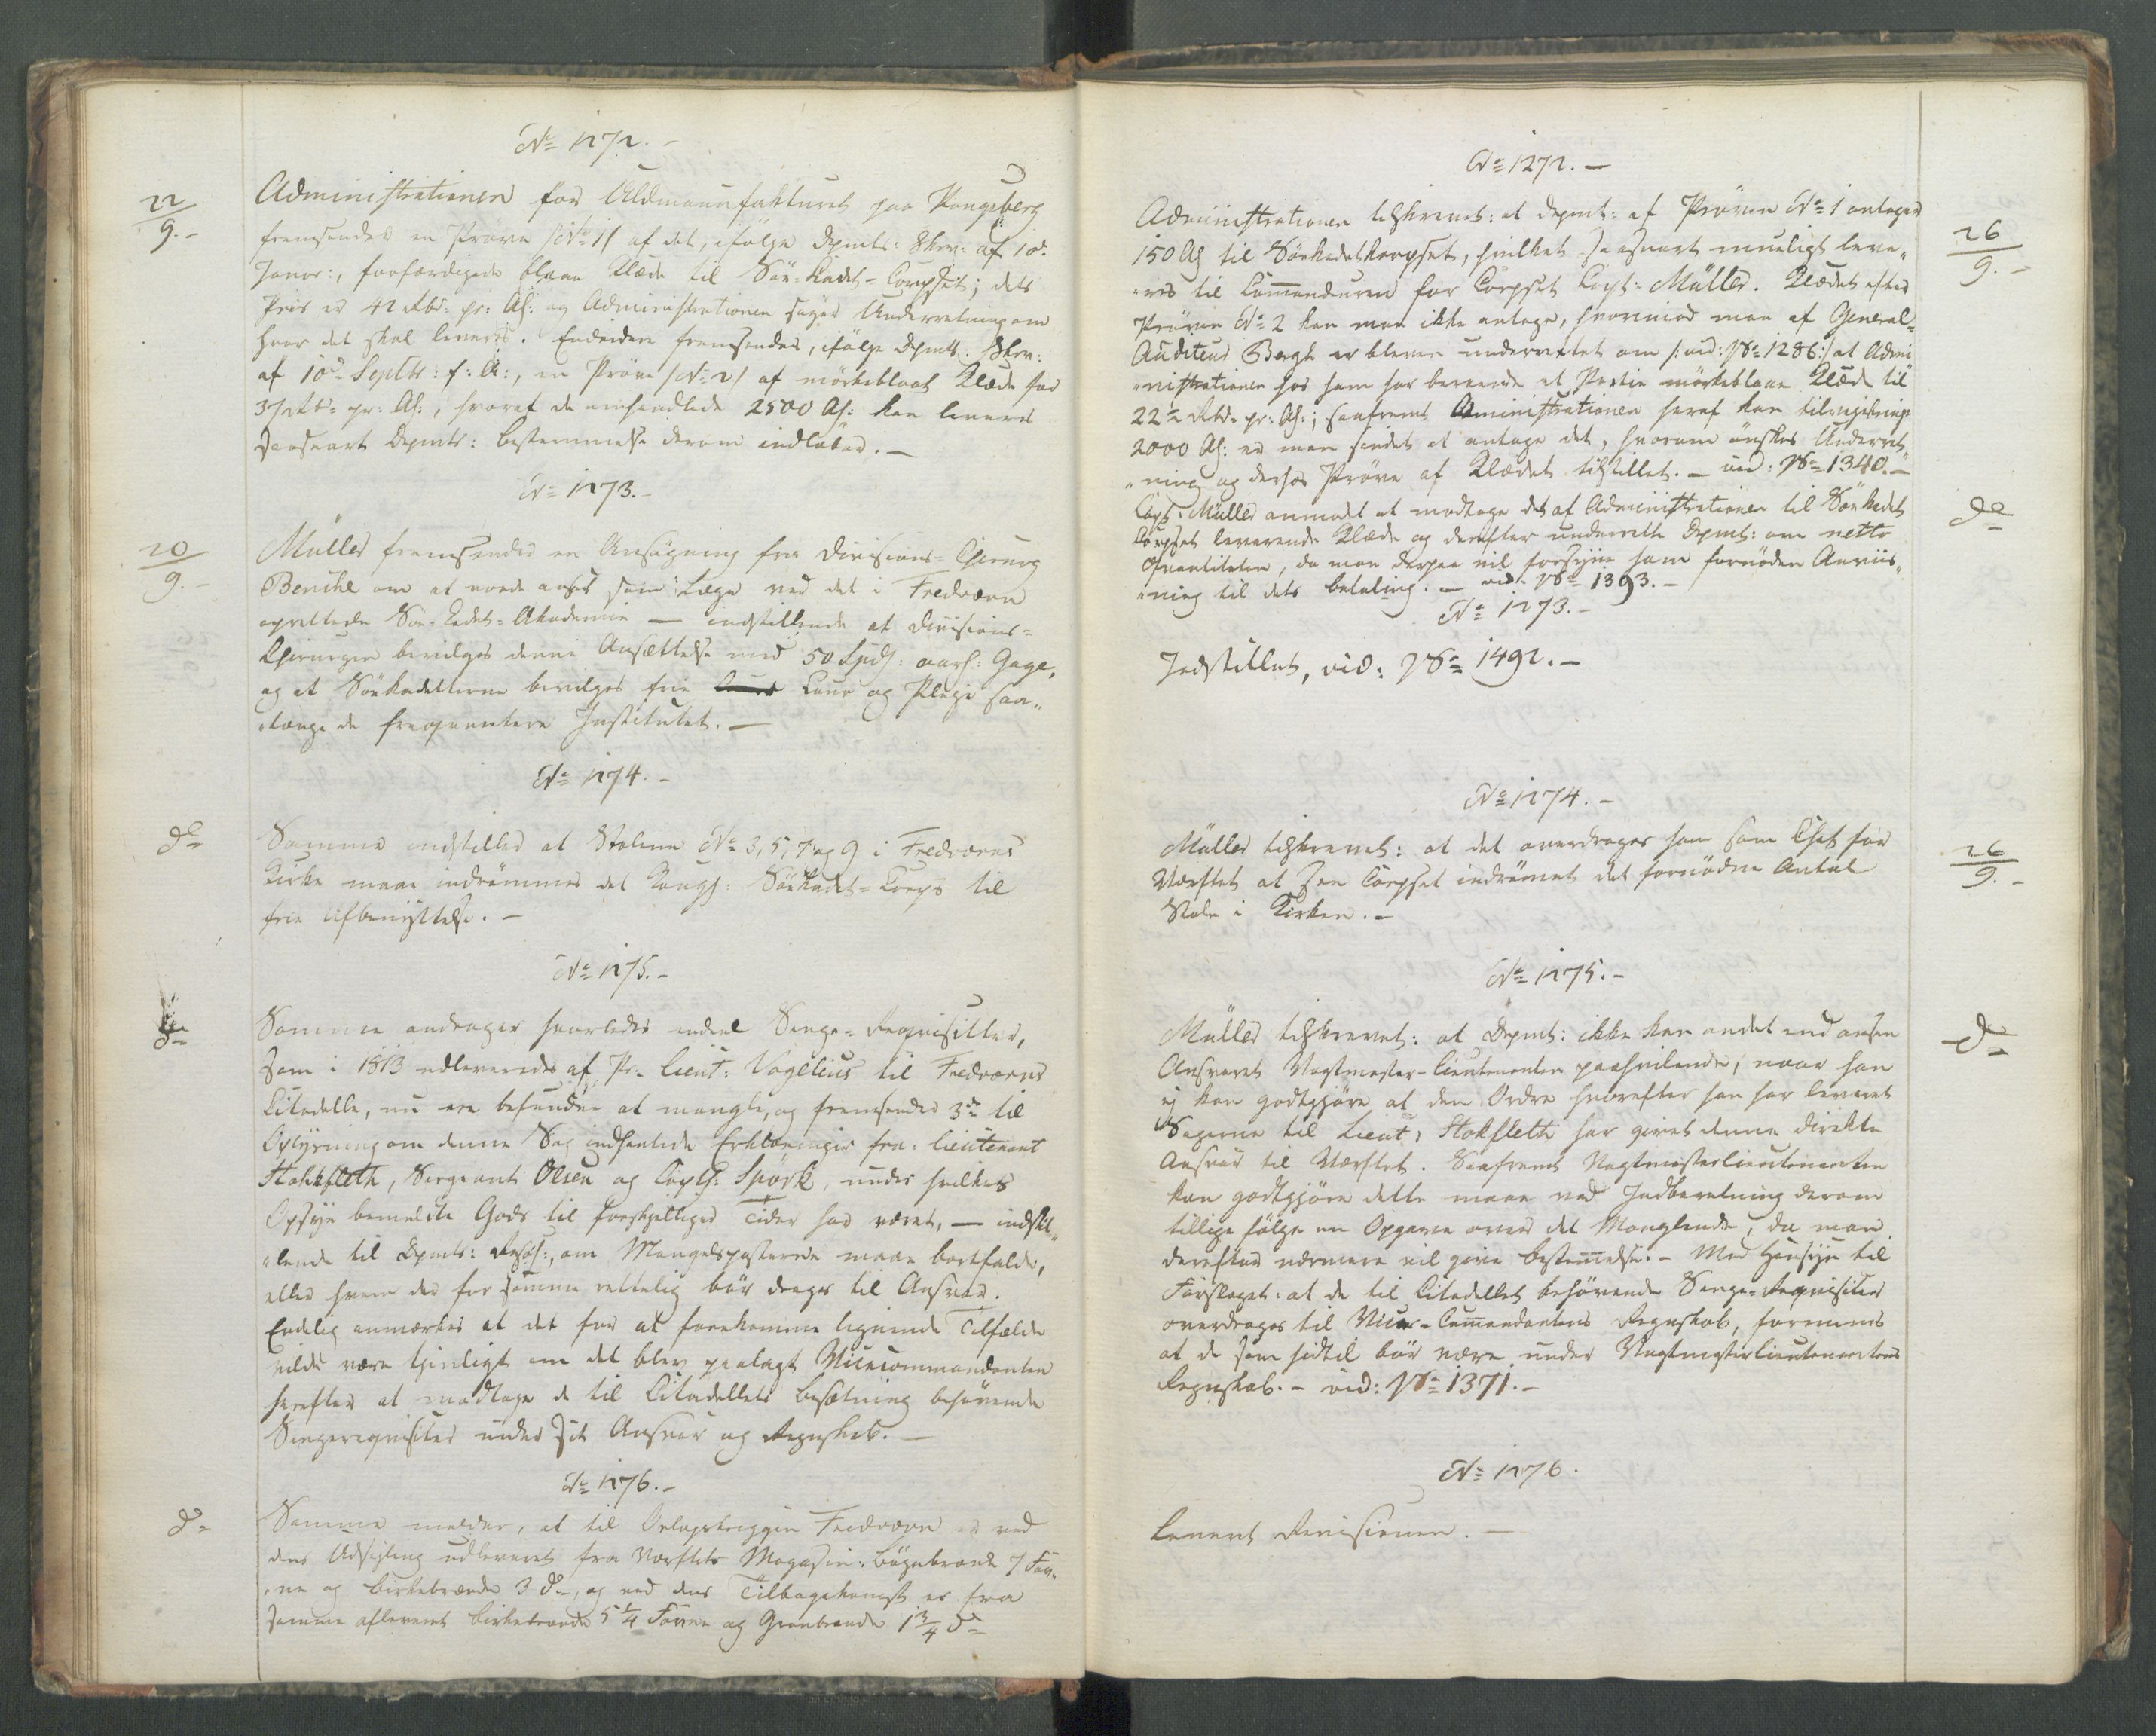 No 1272.-
22/9.-
Administrationen for Uldmanufakturet paa Kongsberg
fremsender en Prøve /:No 1:/ af det, ifølge Depmts: Skriv: af 10de
Janvr:, forfærdigede blaae Klæde til Søe-Kadet-Corpset; dets
Priis er 42 Rbd: pr: Al: og Administrationen søger Underretning om
hvor det skal leveres. Endvidere fremsendes, ifølge Depmts: Skriv:
af 10de Septbr: f: A:, en Prøve /:No 2:/ af mørkeblaat Klæde for
37 Rbd: pr: Al:, hvoraf de omhandlede 2500 Al: kan leveres
saasnart Depmts: Bestemmelse derom indløber.-
No 1273.-
20/9.-
Müller fremsender en Ansøgning fra Divisions-Chirurg
Benche om at vorde ansat som Læge ved det i Fredværn
oprettede Søe-Kadet-Akademie — indstillende at Divisions-
Chirurgen bevilges denne Ansættelse med 50 Spd: aarl: Gage,
og at Søkadetterne bevilges frie Cuur og Pleje saa-
længe de freqventere Institutet.-
No 1274.-
do
Samme indstiller at Stolene No 3, 5, 7 og 9 i Fredværns
Kirke maae indrømmes det Kongl: Søkadet-Corps til
frie Afbenyttelse.-
No 1275.-
do
Samme andrager hvorledes endeel Senge-Reqvisitter,
som i 1813 udleveredes af Pr: Lieut: Vogelius til Fredværns
Citadelle, nu ere befundne at mangle, og fremsender 3de til
Oplysning om denne Sag indhentede Erklæringer fra: Lieutenant
Stokfleth, Sergeant Olsen og Capt: Spørk, under hvilkes
Opsyn bemeldte Gods til forskjellige Tider har været, — indstil-
lende til Depmts: Resol:, om Mangelsposterne maae bortfalde,
eller hvem der for samme rettelig bør drages til Ansvar.
Endelig anmærkes at det for at forekomme lignende Tilfælde
vilde være tjenligt om det blev paalagt Vicecommandanten
herefter at modtage de til Citadellets Besætning behøvende
Sengereqvisiter under sit Ansvar og Regnskab.-
No 1276.-
do
Samme melder, at til Orlogsbriggen Fredværn er ved
dens Udseiling udleveret fra Værftets Magasin: Bøgebrænde 7 Fav-
ne og Birkebrænde 3 do, og ved dens Tilbagekomst er fra
samme afleveret Birkebrænde 5 1/4 Favne og Granbrænde 1 3/4 do
No 1272.-
26/9.-
Administrationen tilskrevet: at Depmt: af Prøven No 1 antager
150 Al til Søekadetkorpset, hvilket saasnart mueligt leve-
res til Commandeuren for Corpset Capt: Müller. Klædet efter
Prøven No 2 kan man ikke antage, hvorimod man af General-
Auditeur Bergh er bleven underrettet om /:vid: No 1286:/ at Admi-
nistrationen hos ham har beroende et Partie mørkeblaae Klæde til
22 1/2 Rbd: pr: Al:; saafremt Aministrationen heraf kan tilveiebringe
2000 Al: er man sindet at antage det, hvorom ønskes Underret-
ning og derhos Prøve af Klædet tilstillet.- vid: No 1340.-
do
Capt: Müller anmodet at modtage det af Administrationen til Søkadet
Corpset leverende Klæde og derefter underrette Depmt: om netto
Qvantiteten, da man derpaa vil forsyne ham fornøden Anviis-
ning til dets Betaling.- vid: No 1393.-
No 1273.-
Indstillet, vid: No 1492.-
No 1274.-
26/9.-
Müller tilskrevet: at det overdrages ham som Chef for
Værftet at see Corpset indrømmet det fornødne Antal
Stole i Kirken.-
No 1275.-
do
Müller tilskrevet: at Depmt: ikke kan andet end ansee
Ansvaret Vagtmester-Lieutenanten paahvilende, naar han
ej kan godtgjøre at den Ordre hvorefter han har leveret
Sagerne til Lieut: Stokfleth har givet denne direkte
Ansvar til Værftet. Saafremt Vagtmesterlieutenanten
kan godtgjøre dette maae ved Indberetning derom
tillige følge en Opgave over det Manglende, da man
derefter nærmere vil give Bestemmelse.- Med Hensyn til
Forslaget: at de til Citadellet behøvende Senge-Reqvisiter
overdrages til Vice-Commandantens Regnskab, formenes
at de som hidtil bør være under Vagtmesterlieutenantens
Regnskab.- vid: No 1371.-
No 1276.
Leveret Revisionen.-